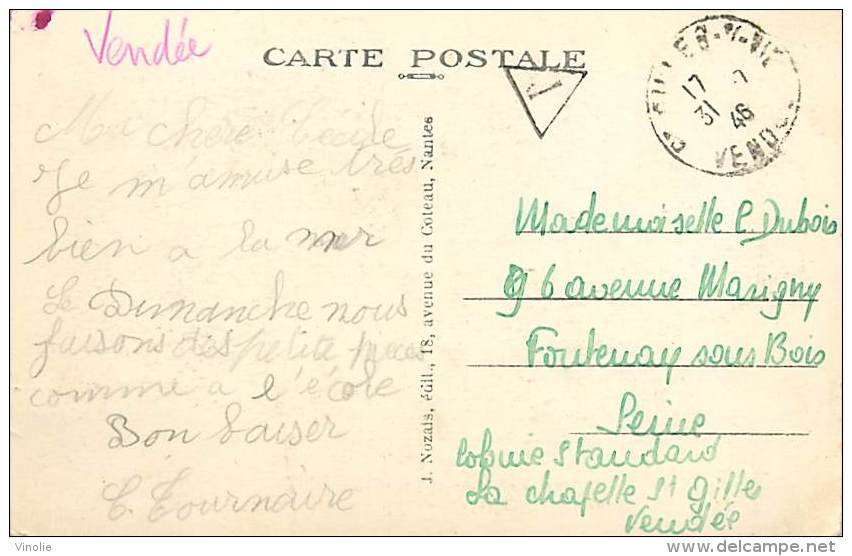 Vendée
CARTE POSTALE
T
ST GILLES-S-VIE
17
31 46
VENDÉE
Ma chère Cécile
Je m'amuse très
bien a la mer
Le Dimanche nous
faisons des petite pieces
comme a l'école
Bon baiser
C. Tournaire
J. Nozais, édit., 18, avenue du Coteau, Nantes
Mademoiselle C. Dubois
96 avenue Marigny
Fontenay sous Bois
Seine
Colonie Standard
La chapelle St Gilles
Vendée
Vinolie
delcampe.net